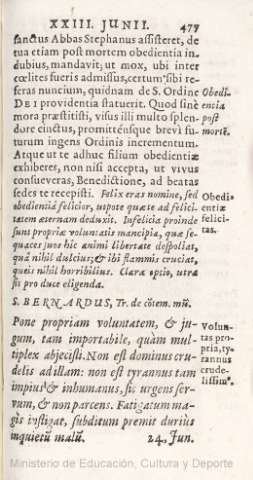 XXIII. JUNII. 477
sanctus Abbas Stephanus assisteret, de
tua etiam post mortem obedientia in-
dubius, mandavit; ut mox, ubi inter
cœlites fueris admissus, certum sibi re-
feras nuncium, quidnam de S. Ordine
DEI providentia statuerit. Quod sinè
mora præstitisti, visus illi multo splen-
dore cinctus, promitténsque brevì fu-
turum ingens Ordinis incrementum.
Atque ut te adhuc filium obedientiæ
exhiberes, non nisi accepta, ut vivus
consueveras, Benedictione, ad beatas
sedes te recepisti. Felix eras nomine, sed
obedientiâ felicior, utpote quæ te ad felici-
tatem æternam deduxit. Infelicia proinde
sunt propriæ voluntatis mancipia, quæ se-
quaces suos hîc animi libertate despoliat,
quâ nihil dulcius; & ibi flammis cruciat,
queis nihil horribilius. Clara optio, utra
sit pro duce eligenda.
Obedi-
encia
post
mortē.
Obedi-
entiæ
felici-
tas.
S. BERNARDUS, Tr. de cōtem. mū.
Pone propriam voluntatem, & ju-
gum, tam importabile, quàm mul-
tiplex abjecisti. Non est dominus cru-
delis ad illam: non est tyrannus tam
impius & inhumanus, sic urgens ser-
vum, & non parcens. Fatigatum ma-
gis instigat, subditum premit durius
inquietū malū. 24. Jun.
Volun-
tas pro-
pria, ty-
rannus
crude-
lissim⁹.
Ministerio de Educación, Cultura y Deporte